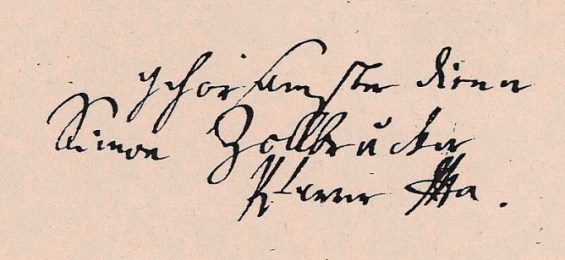 gehorsamster diener
Simon Zollbrucker
Pfarrer